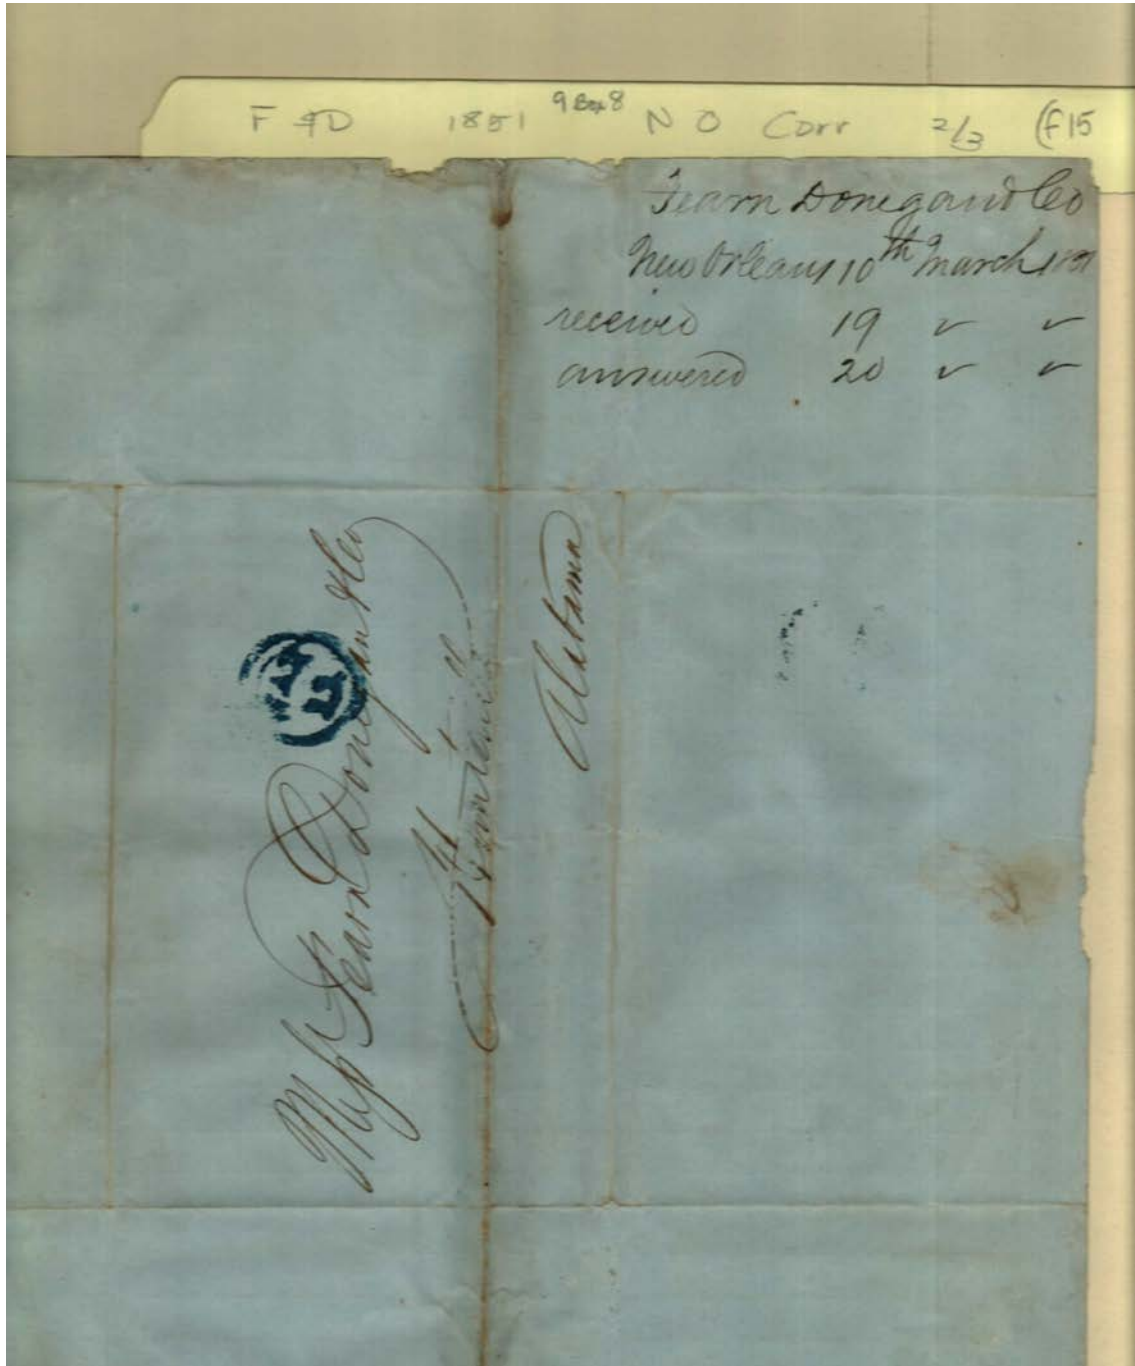 F & D 1851 9 Box 8 N O Corr 2/3 (F15
Fearn Donegan & Co
New Orleans 10th March 1851
received 19 " "
answered 20 " "
Messrs Fearn Donegan & Co
Huntsville
Alabama